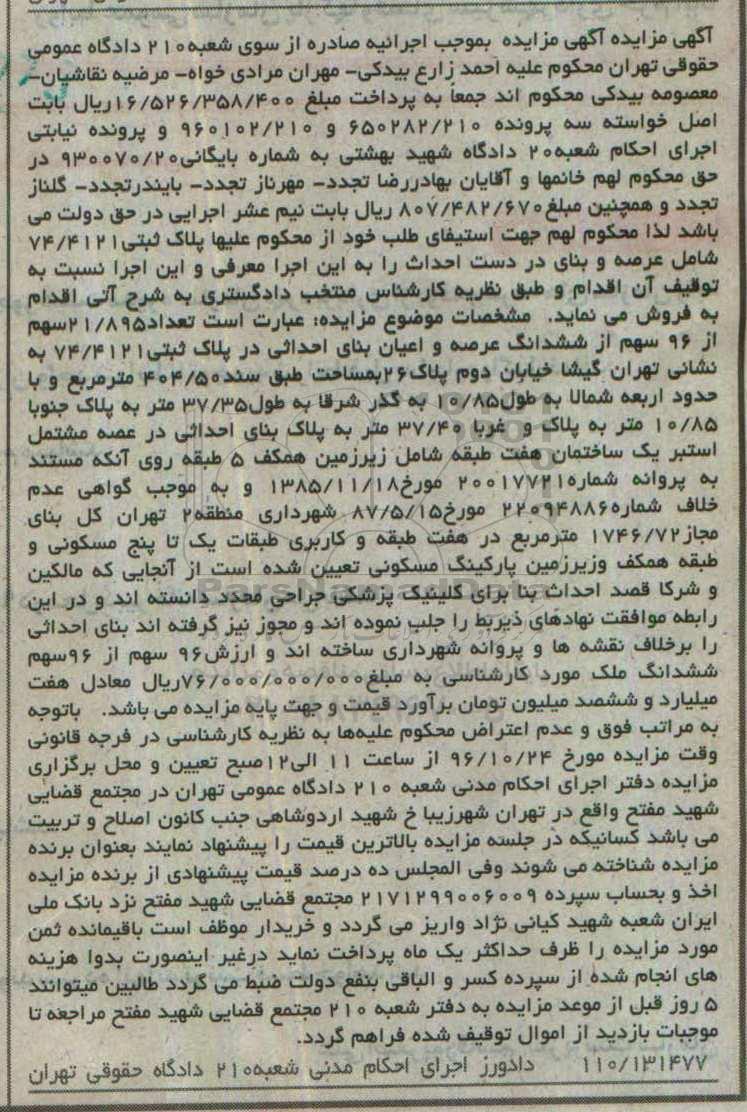 آگهی مزایده آگهی مزایده بموجب اجرائیه صادره از سوی شعبه۲۱۰ دادگاه عمومی
حقوقی تهران محکوم علیه احمد زارع بیدکی- مهران مرادی خواه- مرضیه نقاشیان-
معصومه بیدکی محکوم اند جمعاً به پرداخت مبلغ ۱۶/۵۲۶/۳۵۸/۴۰۰ریال بابت
اصل خواسته سه پرونده ۶۵۰۲۸۲/۲۱۰ و ۹۶۰۱۰۲/۲۱۰ و پرونده نیابتی
اجرای احکام شعبه۲۰ دادگاه شهید بهشتی به شماره بایگانی۹۳۰۰۷۰/۲۰ در
حق محکوم لهم خانمها و آقایان بهادررضا تجدد- مهرناز تجدد- بایندرتجدد- گلناز
تجدد و همچنین مبلغ۸۰۷/۴۸۲/۶۷۰ ریال بابت نیم عشر اجرایی در حق دولت می
باشد لذا محکوم لهم جهت استیفای طلب خود از محکوم علیها پلاک ثبتی۷۴/۴۱۲۱
شامل عرصه و بنای در دست احداث را به این اجرا معرفی و این اجرا نسبت به
توقیف آن اقدام و طبق نظریه کارشناس منتخب دادگستری به شرح آتی اقدام
به فروش می نماید. مشخصات موضوع مزایده: عبارت است تعداد۲۱/۸۹۵سهم
از ۹۶ سهم از ششدانگ عرصه و اعیان بنای احداثی در پلاک ثبتی۷۴/۴۱۲۱ به
نشانی تهران گیشا خیابان دوم پلاک۲۶بمساحت طبق سند۴۰۴/۵۰ مترمربع و با
حدود اربعه شمالا به طول۱۰/۸۵ به گذر شرقا به طول۳۷/۳۵ متر به پلاک جنوبا
۱۰/۸۵ متر به پلاک و غربا ۳۷/۴۰ متر به پلاک بنای احداثی در عصه مشتمل
استبر یک ساختمان هفت طبقه شامل زیرزمین همکف ۵ طبقه روی آنکه مستند
به پروانه شماره۲۰۰۱۷۷۲۱ مورخ۱۳۸۵/۱۱/۱۸ و به موجب گواهی عدم
خلاف شماره۲۲۰۹۴۸۸۶ مورخ۸۷/۵/۱۵ شهرداری منطقه۲ تهران کل بنای
مجاز۱۷۴۶/۷۲ مترمربع در هفت طبقه و کاربری طبقات یک تا پنج مسکونی و
طبقه همکف وزیرزمین پارکینگ مسکونی تعیین شده است از آنجایی که مالکین
و شرکا قصد احداث بنا برای کلینیک پزشکی جراحی محدد دانسته اند و در این
رابطه موافقت نهادهای ذیربط را جلب نموده اند و مجوز نیز گرفته اند بنای احداثی
را برخلاف نقشه ها و پروانه شهرداری ساخته اند و ارزش۹۶ سهم از ۹۶سهم
ششدانگ ملک مورد کارشناسی به مبلغ۷۶/۰۰۰/۰۰۰/۰۰۰ریال معادل هفت
میلیارد و ششصد میلیون تومان برآورد قیمت و جهت پایه مزایده می باشد. باتوجه
به مراتب فوق و عدم اعتراض محکوم علیه‌ها به نظریه کارشناسی در فرجه قانونی
وقت مزایده مورخ ۹۶/۱۰/۲۴ از ساعت ۱۱ الی۱۲صبح تعیین و محل برگزاری
مزایده دفتر اجرای احکام مدنی شعبه ۲۱۰ دادگاه عمومی تهران در مجتمع قضایی
شهید مفتح واقع در تهران شهرزیبا خ شهید اردوشاهی جنب کانون اصلاح و تربیت
می باشد کسانیکه در جلسه مزایده بالاترین قیمت را پیشنهاد نمایند بعنوان برنده
مزایده شناخته می شوند وفی المجلس ده درصد قیمت پیشنهادی از برنده مزایده
اخذ و بحساب سپرده ۲۱۷۱۲۹۹۰۰۶۰۰۹ مجتمع قضایی شهید مفتح نزد بانک ملی
ایران شعبه شهید کیانی نژاد واریز می گردد و خریدار موظف است باقیمانده ثمن
مورد مزایده را ظرف حداکثر یک ماه پرداخت نماید درغیر اینصورت بدوا هزینه
های انجام شده از سپرده کسر و الباقی بنفع دولت ضبط می گردد طالبین میتوانند
۵ روز قبل از موعد مزایده به دفتر شعبه ۲۱۰ مجتمع قضایی شهید مفتح مراجعه تا
موجبات بازدید از اموال توقیف شده فراهم گردد.
۱۱۰/۱۳۱۴۷۷ دادورز اجرای احکام مدنی شعبه۲۱۰ دادگاه حقوقی تهران